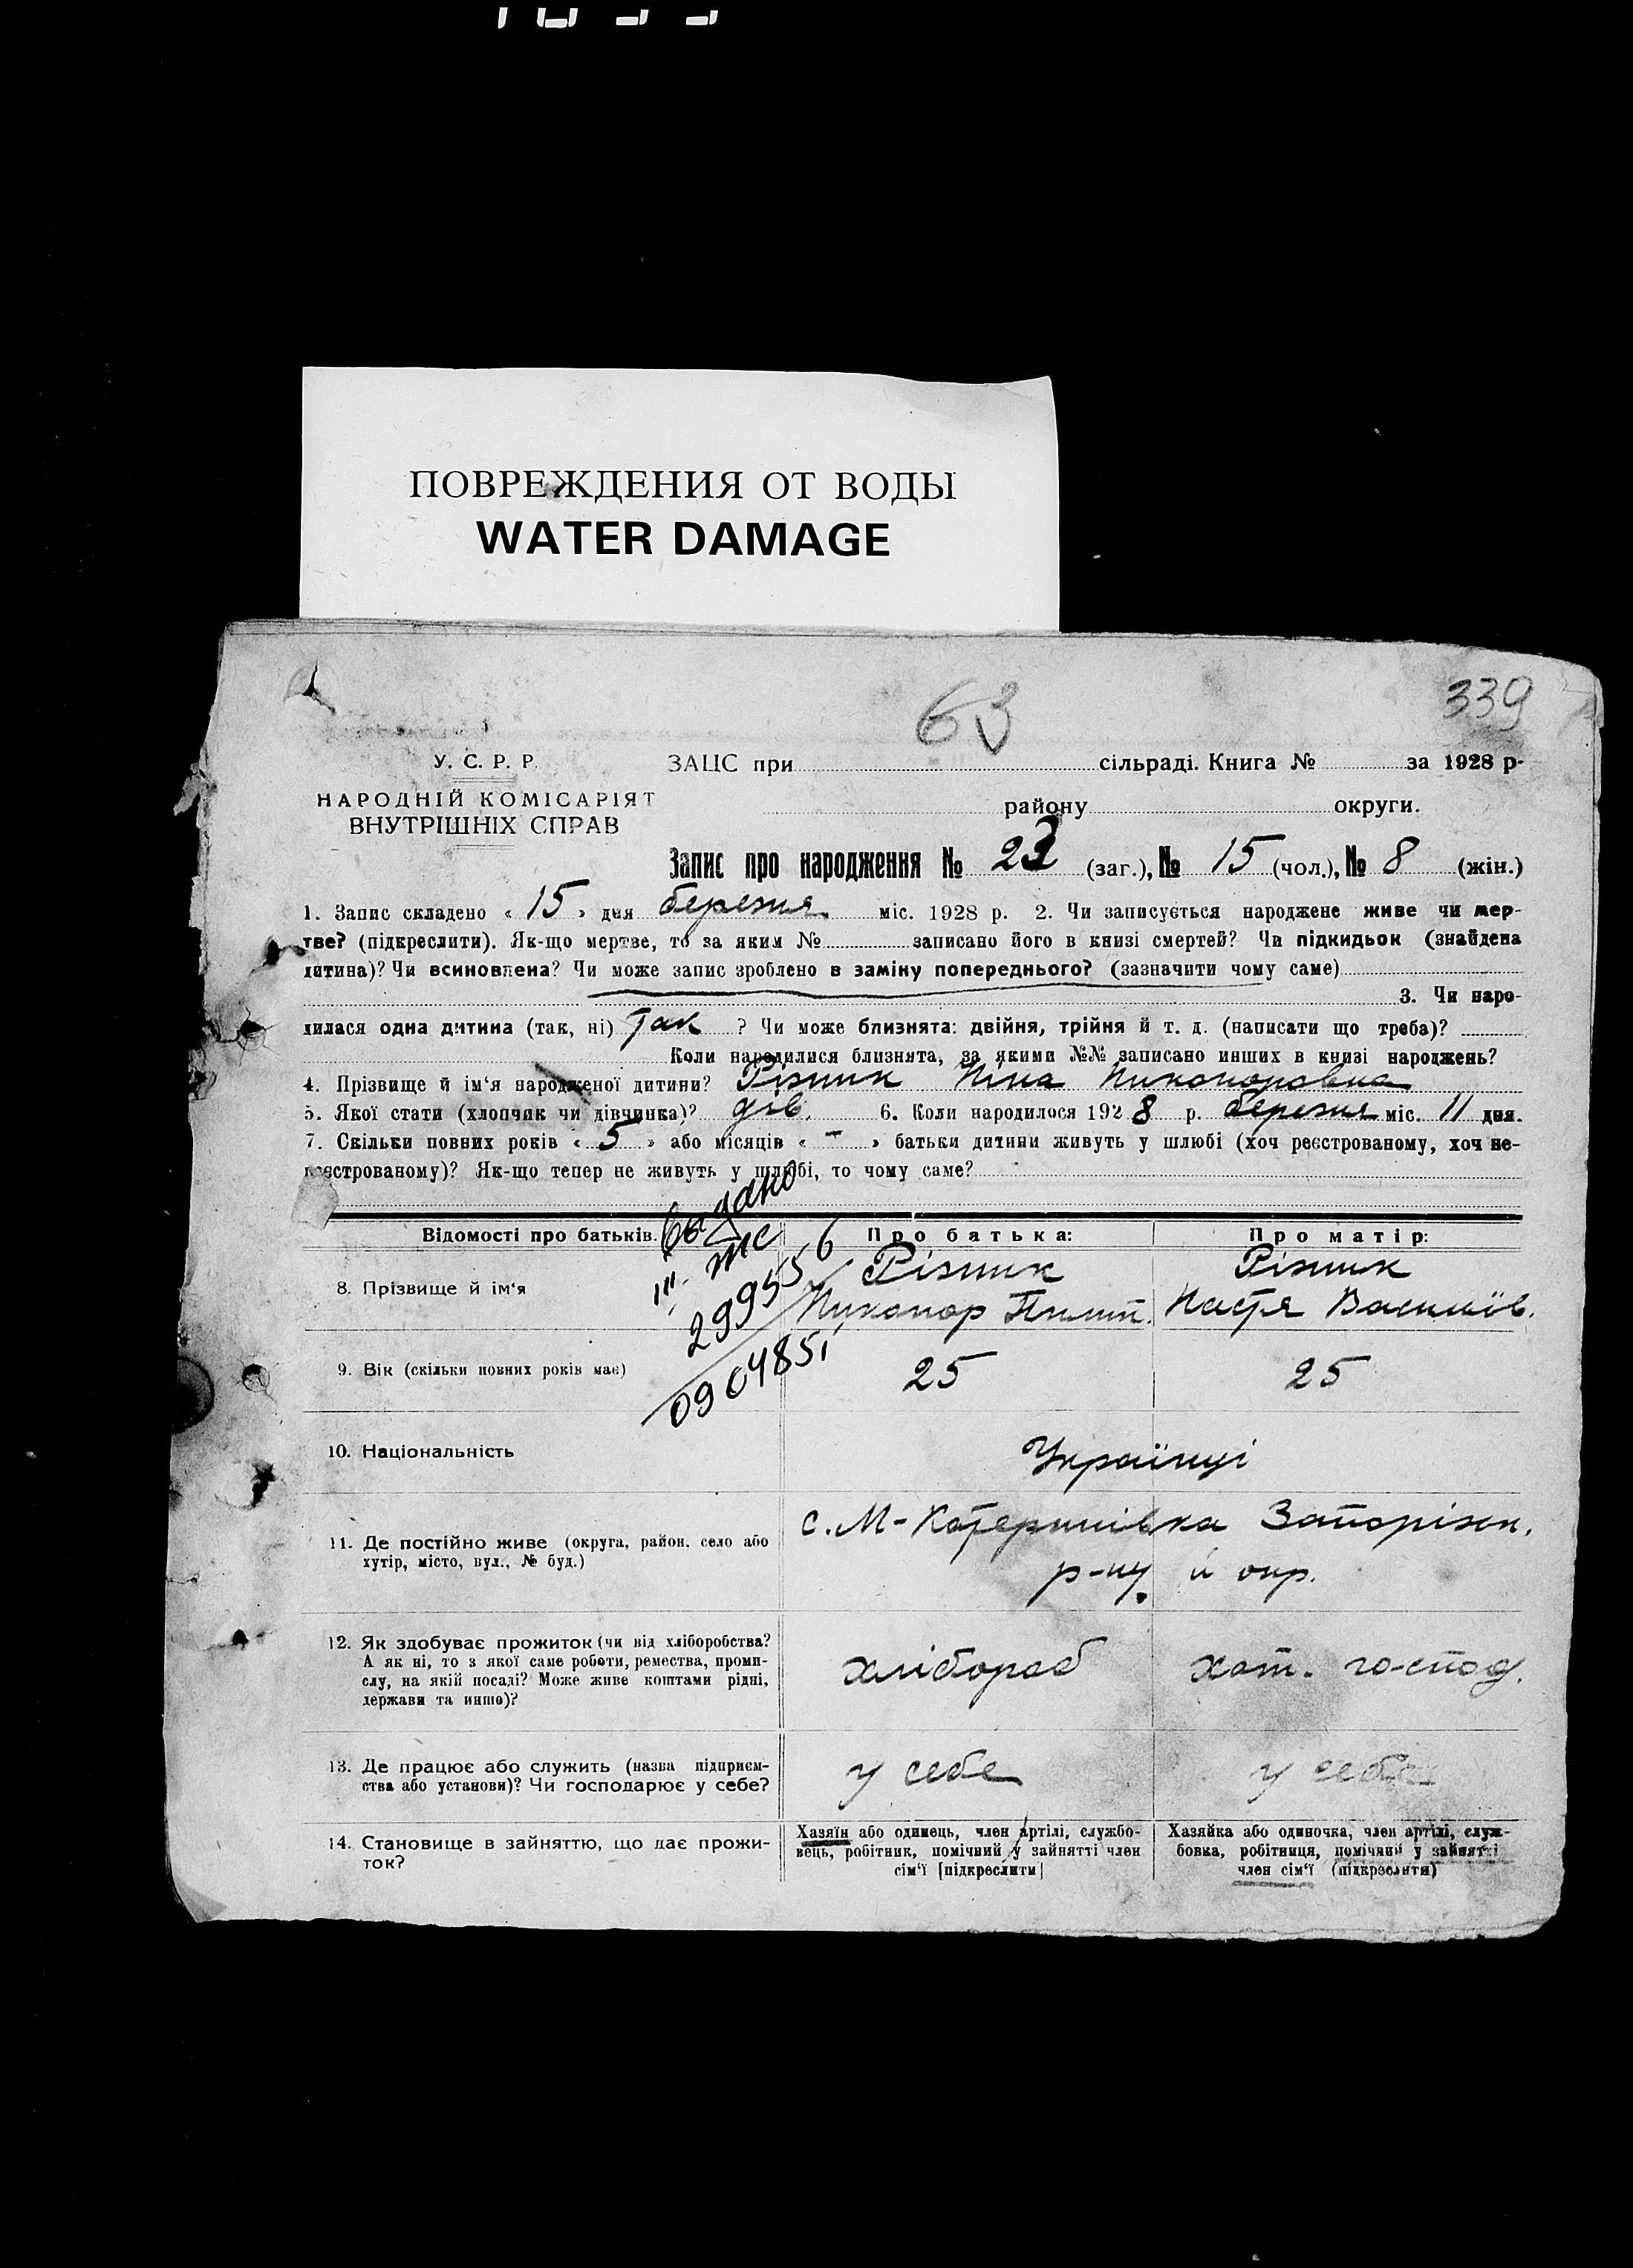 ПОВРЕЖДЕНИЯ ОТ ВОДЫ
WATER DAMAGE
63
339
У. С. Р. Р.
НАРОДНІЙ КОМІСАРІЯТ
ВНУТРІШНІХ СПРАВ
ЗАЦС при сільраді. Книга № за 1928 р-
району округи.
Запис про народження № 23 (заг.), № 15 (чол.), № 8 (жін.)
1. Запис складено « 15 » дня березня міс. 1928 р. 2. Чи записується народжене живе чи мер-
тве? (підкреслити). Як-що мертве, то за яким № записано його в книзі смертей? Чи підкидьок (знайдена
дитина)? Чи всиновлена? Чи може запис зроблено в заміну попереднього? (зазначити чому саме)
3. Чи наро-
дилася одна дитина (так, ні) так ? Чи може близнята: двійня, трійня й т. д. (написати що треба)?
Коли народилися близнята, за якими №№ записано инших в книзі народжень?
4. Прізвище й ім‘я народженої дитини? Різник Ніна Никоноровна
5. Якої стати (хлопчик чи дівчинка)? дів. 6. Коли народилося 1928 р. березня міс. 11 дня.
7. Скільки повних років « 5 » або місяців « - » батьки дитини живуть у шлюбі (хоч реєстрованому, хоч не-
реєстрованому)? Як-що тепер не живуть у шлюбі, то чому саме?
Відомості про батьків.
Про батька:
Про матір:
8. Прізвище й ім‘я
Різник
Никонор Пилип.
Різник
Настя Василів.
299556
0904851
9. Вік (скільки повних років має)
25
25
10. Національність
Українці
11. Де постійно живе (округа, район, село або
хутір, місто, вул., № буд.)
с. М-Катеринівка Запоріжж.
р-ну й окр.
12. Як здобуває прожиток (чи від хліборобства?
А як ні, то з якої саме роботи, ремества, проми-
слу, на якій посаді? Може живе коштами рідні,
держави та инше)?
хлібороб
хат. господ.
13. Де працює або служить (назва підприєм-
ства або установи)? Чи господарює у себе?
у себе
у себе
14. Становище в зайняттю, що дає прожи-
ток?
Хазяїн або одинець, член артілі, службо-
вець, робітник, помічний у зайнятті член
сім‘ї [підкреслити]
Хазяйка або одиночка, член артілі, служ-
бовка, робітниця, помічний у зайнятті
член сім‘ї (підкреслити)